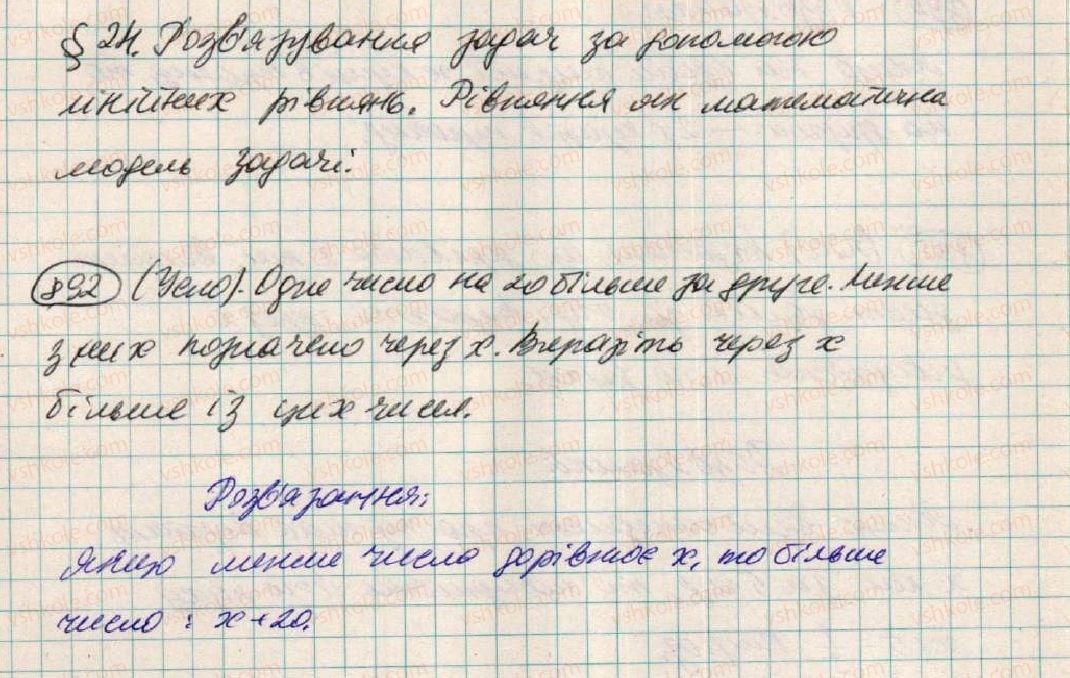 § 24. Розв'язування задач за допомогою
лінійних рівнянь. Рівняння як математична
модель задачі.
892 (Усно). Одне число на 20 більше за друге. Менше
з них позначено через x. Виразіть через x
більше із цих чисел.
Розв'язання:
Якщо менше число дорівнює x, то більше
число: x+20.